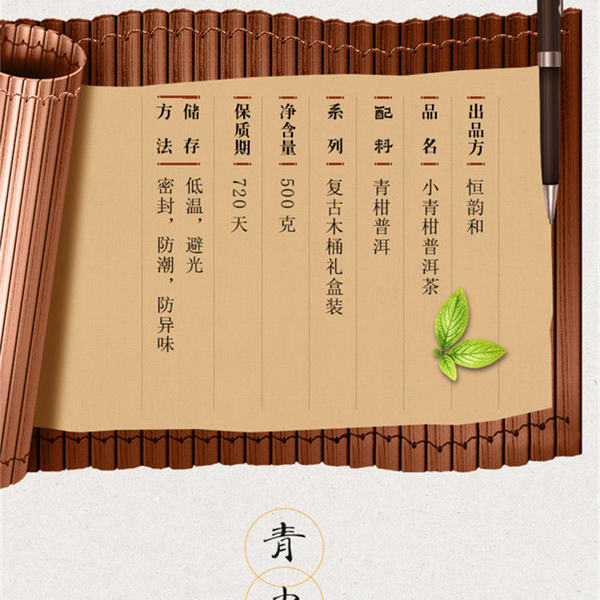 出品方 恒韵和
品名 小青柑普洱茶
配料 青柑普洱
系列 复古木桶礼盒装
净含量 500克
保质期 720天
储存 低温，避光
方法 密封，防潮，防异味
青